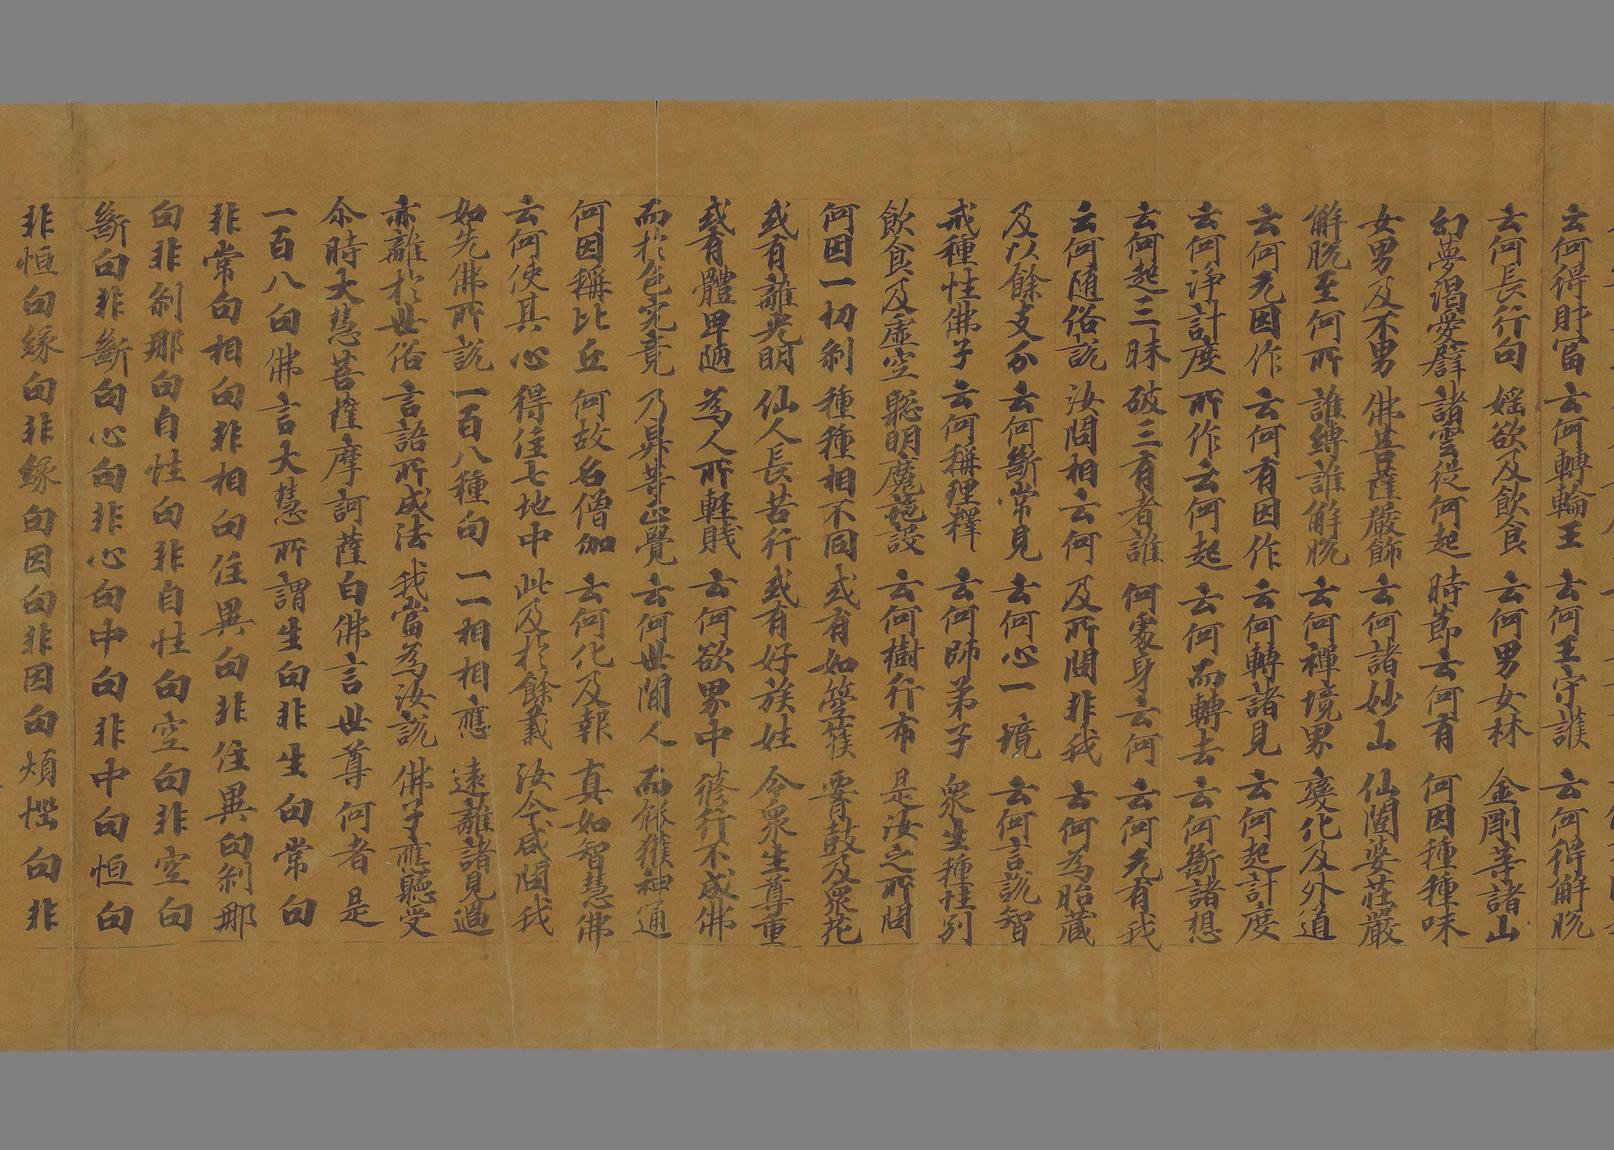 云何得財富 云何轉輪王 云何王守護 云何得解脫
云何長行句 婬欲及飲食 云何男女林 金剛等諸山
幻夢渴愛譬 諸雲從何起 時節云何有 何因種種味
女男及不男 佛菩薩嚴飾 云何諸妙山 仙闥婆莊嚴
解脫至何所 誰縛誰解脫 云何禪境界 變化及外道
云何无因作 云何有因作 云何轉諸見 云何起計度
云何淨計度 所作云何起 云何而轉去 云何斷諸想
云何起三昧 破三有者誰 何處身云何 云何无有我
云何隨俗說 汝問相云何 及所問非我 云何為胎藏
及以餘支分 云何斷常見 云何心一境 云何言說智
戒種性佛子 云何稱理釋 云何師弟子 眾生種性別
飲食及虛空 聰明魔施設 云何樹行布 是汝之所問
何因一切剎 種種相不同 或有如箜篌 腰鼓及眾花
或有離光明 仙人長苦行 或有好族姓 令眾生尊重
或有體卑陋 為人所輕賤 云何欲界中 修行不成佛
而於色究竟 乃昇等正覺 云何世間人 而能獲神通
何因稱比丘 何故名僧伽 云何化及報 真如智慧佛
云何使其心 得住七地中 此及於餘義 汝今咸問我
如先佛所說 一百八種句 一一相相應 遠離諸見過
亦離於世俗 言語所成法 我當為汝說 佛子應聽受
尒時大慧菩薩摩訶薩白佛言世尊何者是
一百八句佛言大慧所謂生句非生句常句
非常句相句非相句住異句非住異句剎那
句非剎那句自性句非自性句空句非空句
斷句非斷句心句非心句中句非中句恒句
非恒句緣句非緣句因句非因句煩惱句非